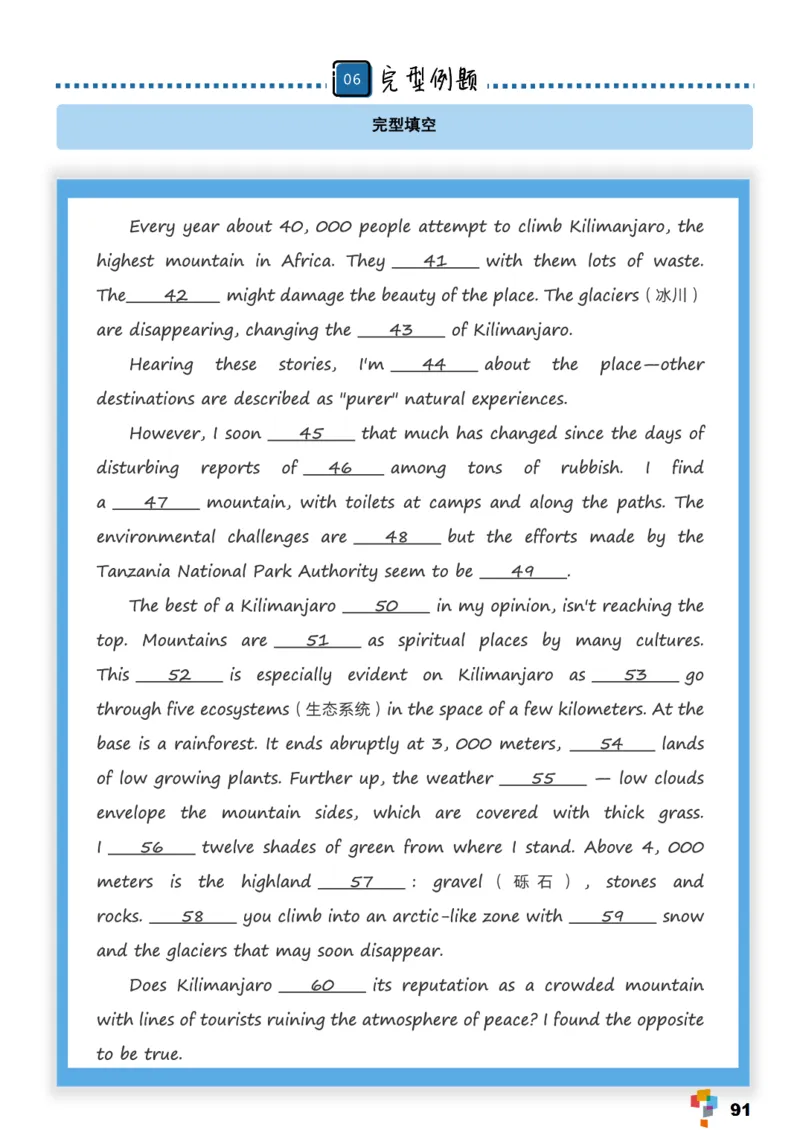 06 完型例题
完型填空
Every year about 40, 000 people attempt to climb Kilimanjaro, the
highest mountain in Africa. They 41 with them lots of waste.
The 42 might damage the beauty of the place. The glaciers (冰川)
are disappearing, changing the 43 of Kilimanjaro.
Hearing these stories, I'm 44 about the place—other
destinations are described as "purer" natural experiences.
However, I soon 45 that much has changed since the days of
disturbing reports of 46 among tons of rubbish. I find
a 47 mountain, with toilets at camps and along the paths. The
environmental challenges are 48 but the efforts made by the
Tanzania National Park Authority seem to be 49.
The best of a Kilimanjaro 50 in my opinion, isn't reaching the
top. Mountains are 51 as spiritual places by many cultures.
This 52 is especially evident on Kilimanjaro as 53 go
through five ecosystems (生态系统) in the space of a few kilometers. At the
base is a rainforest. It ends abruptly at 3, 000 meters, 54 lands
of low growing plants. Further up, the weather 55 — low clouds
envelope the mountain sides, which are covered with thick grass.
I 56 twelve shades of green from where I stand. Above 4, 000
meters is the highland 57 : gravel (砾石), stones and
rocks. 58 you climb into an arctic-like zone with 59 snow
and the glaciers that may soon disappear.
Does Kilimanjaro 60 its reputation as a crowded mountain
with lines of tourists ruining the atmosphere of peace? I found the opposite
to be true.
91